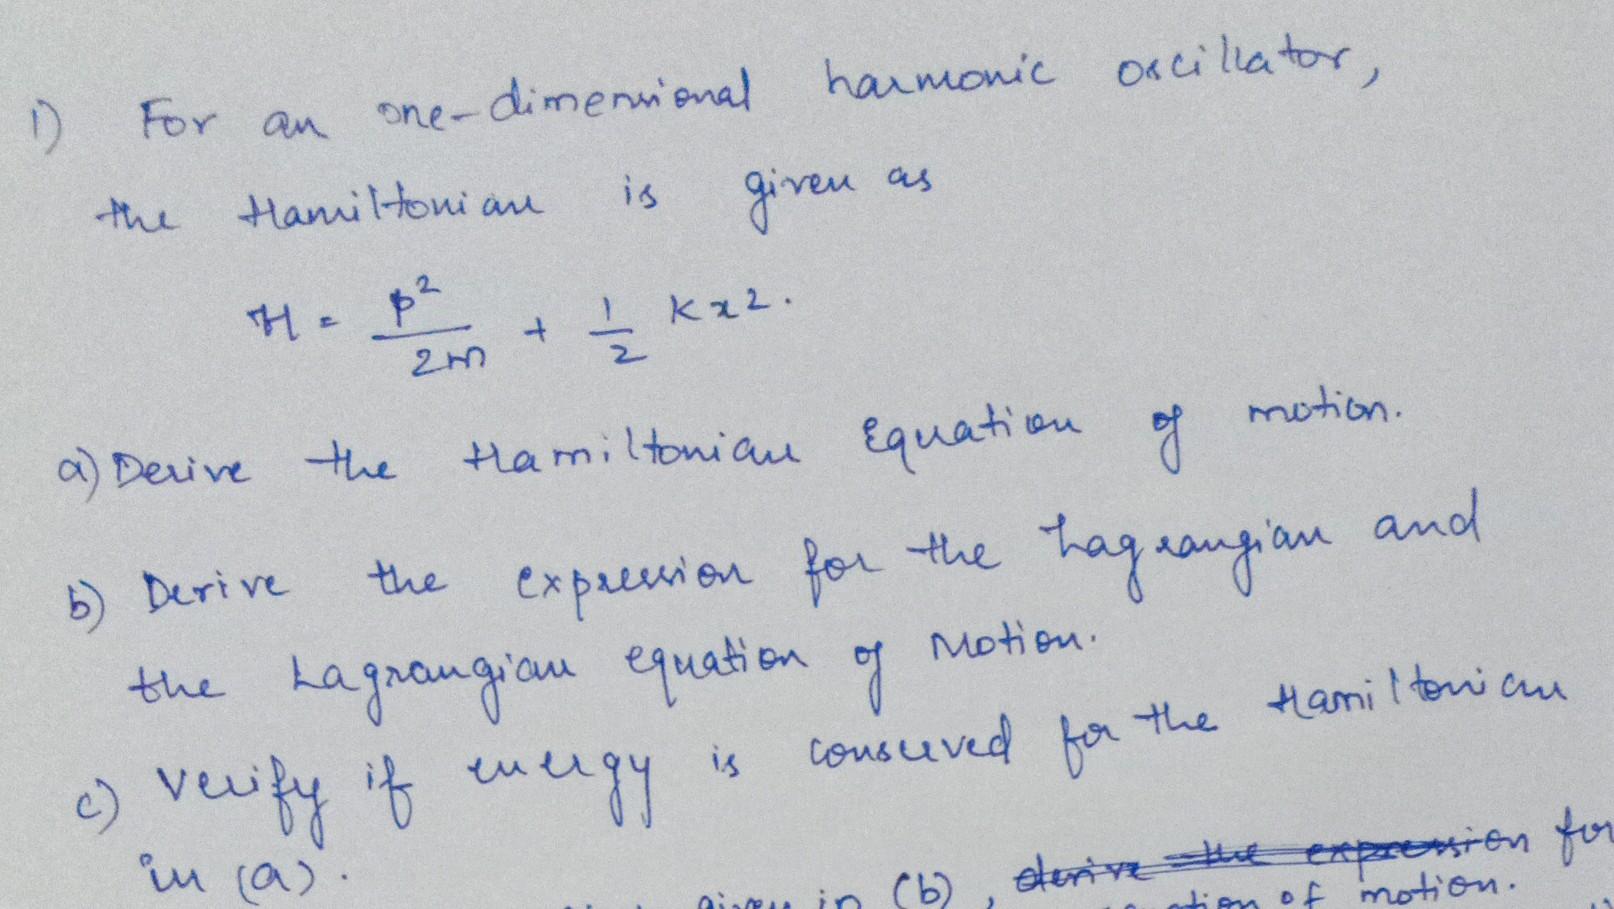 1) For an one-dimensional harmonic oscillator,
the Hamiltonian is given as
H = p²/2m + 1/2 kx2.
a) Derive the Hamiltonian Equation of motion.
b) Derive the expression for the Lagrangian and
the Lagrangian equation of Motion.
c) Verify if energy is conserved for the Hamiltonian
in (a).
given in (b), derive the expression for
of motion.